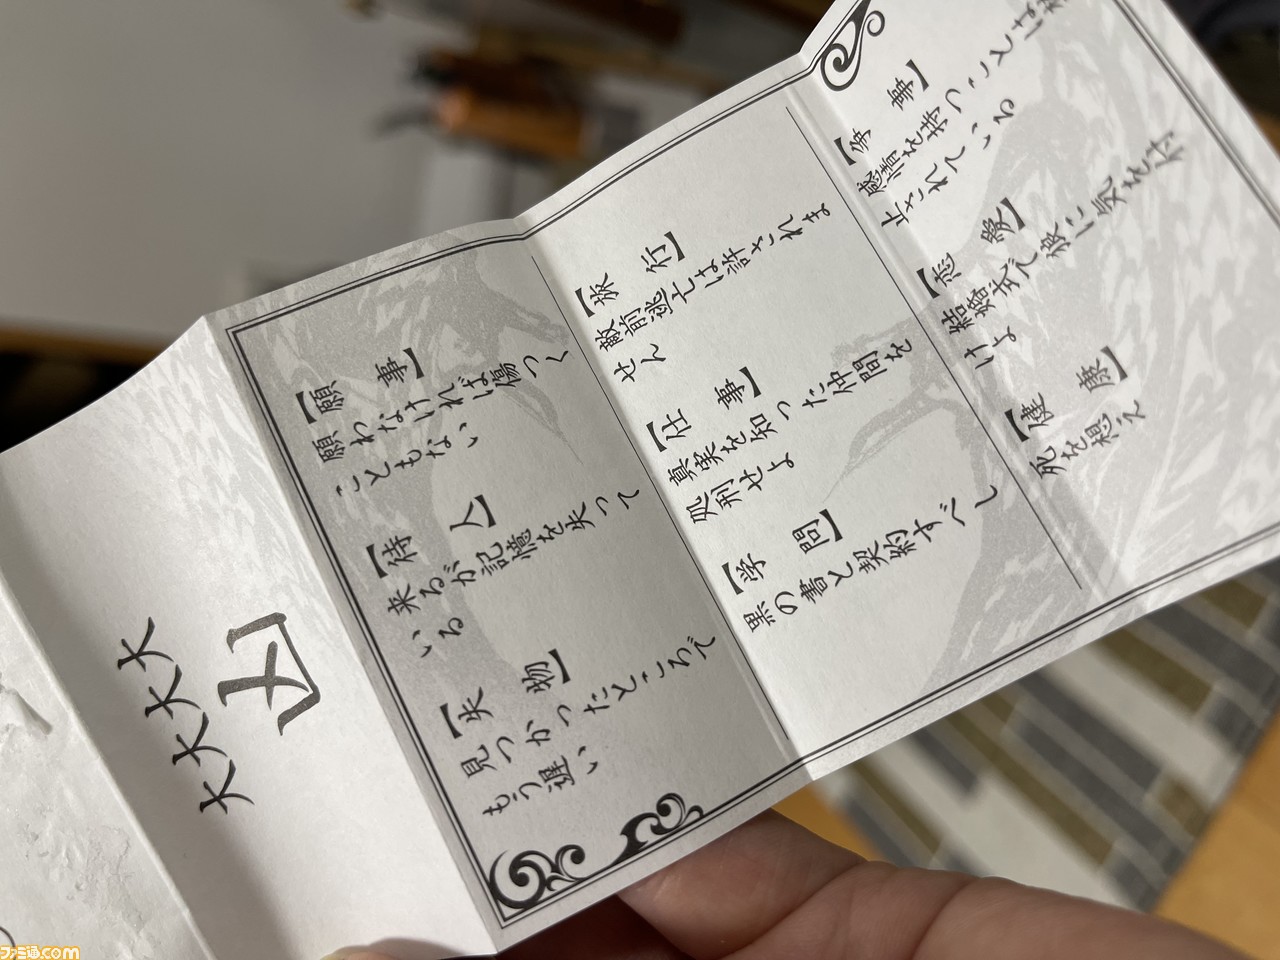 大大大大
凶
【願　事】
願わなければ傷つく
こともない
【待　人】
来るが記憶を失って
いる
【失　物】
見つかったところで
もう遅い
【旅　行】
敵前逃亡は許されま
せん
【仕　事】
真実を知った仲間を
処刑せよ
【学　問】
黒の書と契約すべし
【争　事】
感情を持つことは
止されている
【恋　愛】
結婚式で彼に気を付
けよ
【健　康】
死を想え
ファミ通.com